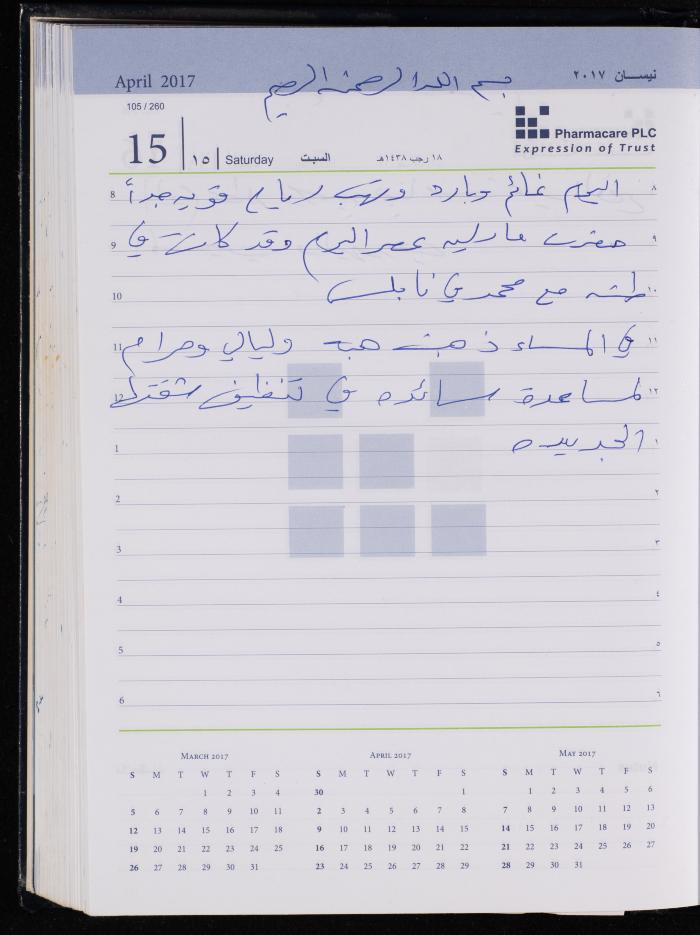 April 2017 نيسان ٢٠١٧
بسم الله الرحمن الرحيم
105 / 260
15 ١٥ Saturday السبت ١٨ رجب ١٤٣٨هـ
Pharmacare PLC
Expression of Trust
8 اليوم غائم وبارد وتهب رياح قويه جداً ٨
9 حضرت مارليه عصر اليوم وقد كانت في ٩
10 طشه مع محمد في نابلس ١٠
11 في المساء ذهبت هبه وليالي ومرام ١١
12 لمساعدة سائده في تنظيف شقتها ١٢
1 الجديده ١
2 ٢
3 ٣
4 ٤
5 ٥
6 ٦
MARCH 2017
S M T W T F S
1 2 3 4
5 6 7 8 9 10 11
12 13 14 15 16 17 18
19 20 21 22 23 24 25
26 27 28 29 30 31
APRIL 2017
S M T W T F S
30 1
2 3 4 5 6 7 8
9 10 11 12 13 14 15
16 17 18 19 20 21 22
23 24 25 26 27 28 29
MAY 2017
S M T W T F S
1 2 3 4 5 6
7 8 9 10 11 12 13
14 15 16 17 18 19 20
21 22 23 24 25 26 27
28 29 30 31